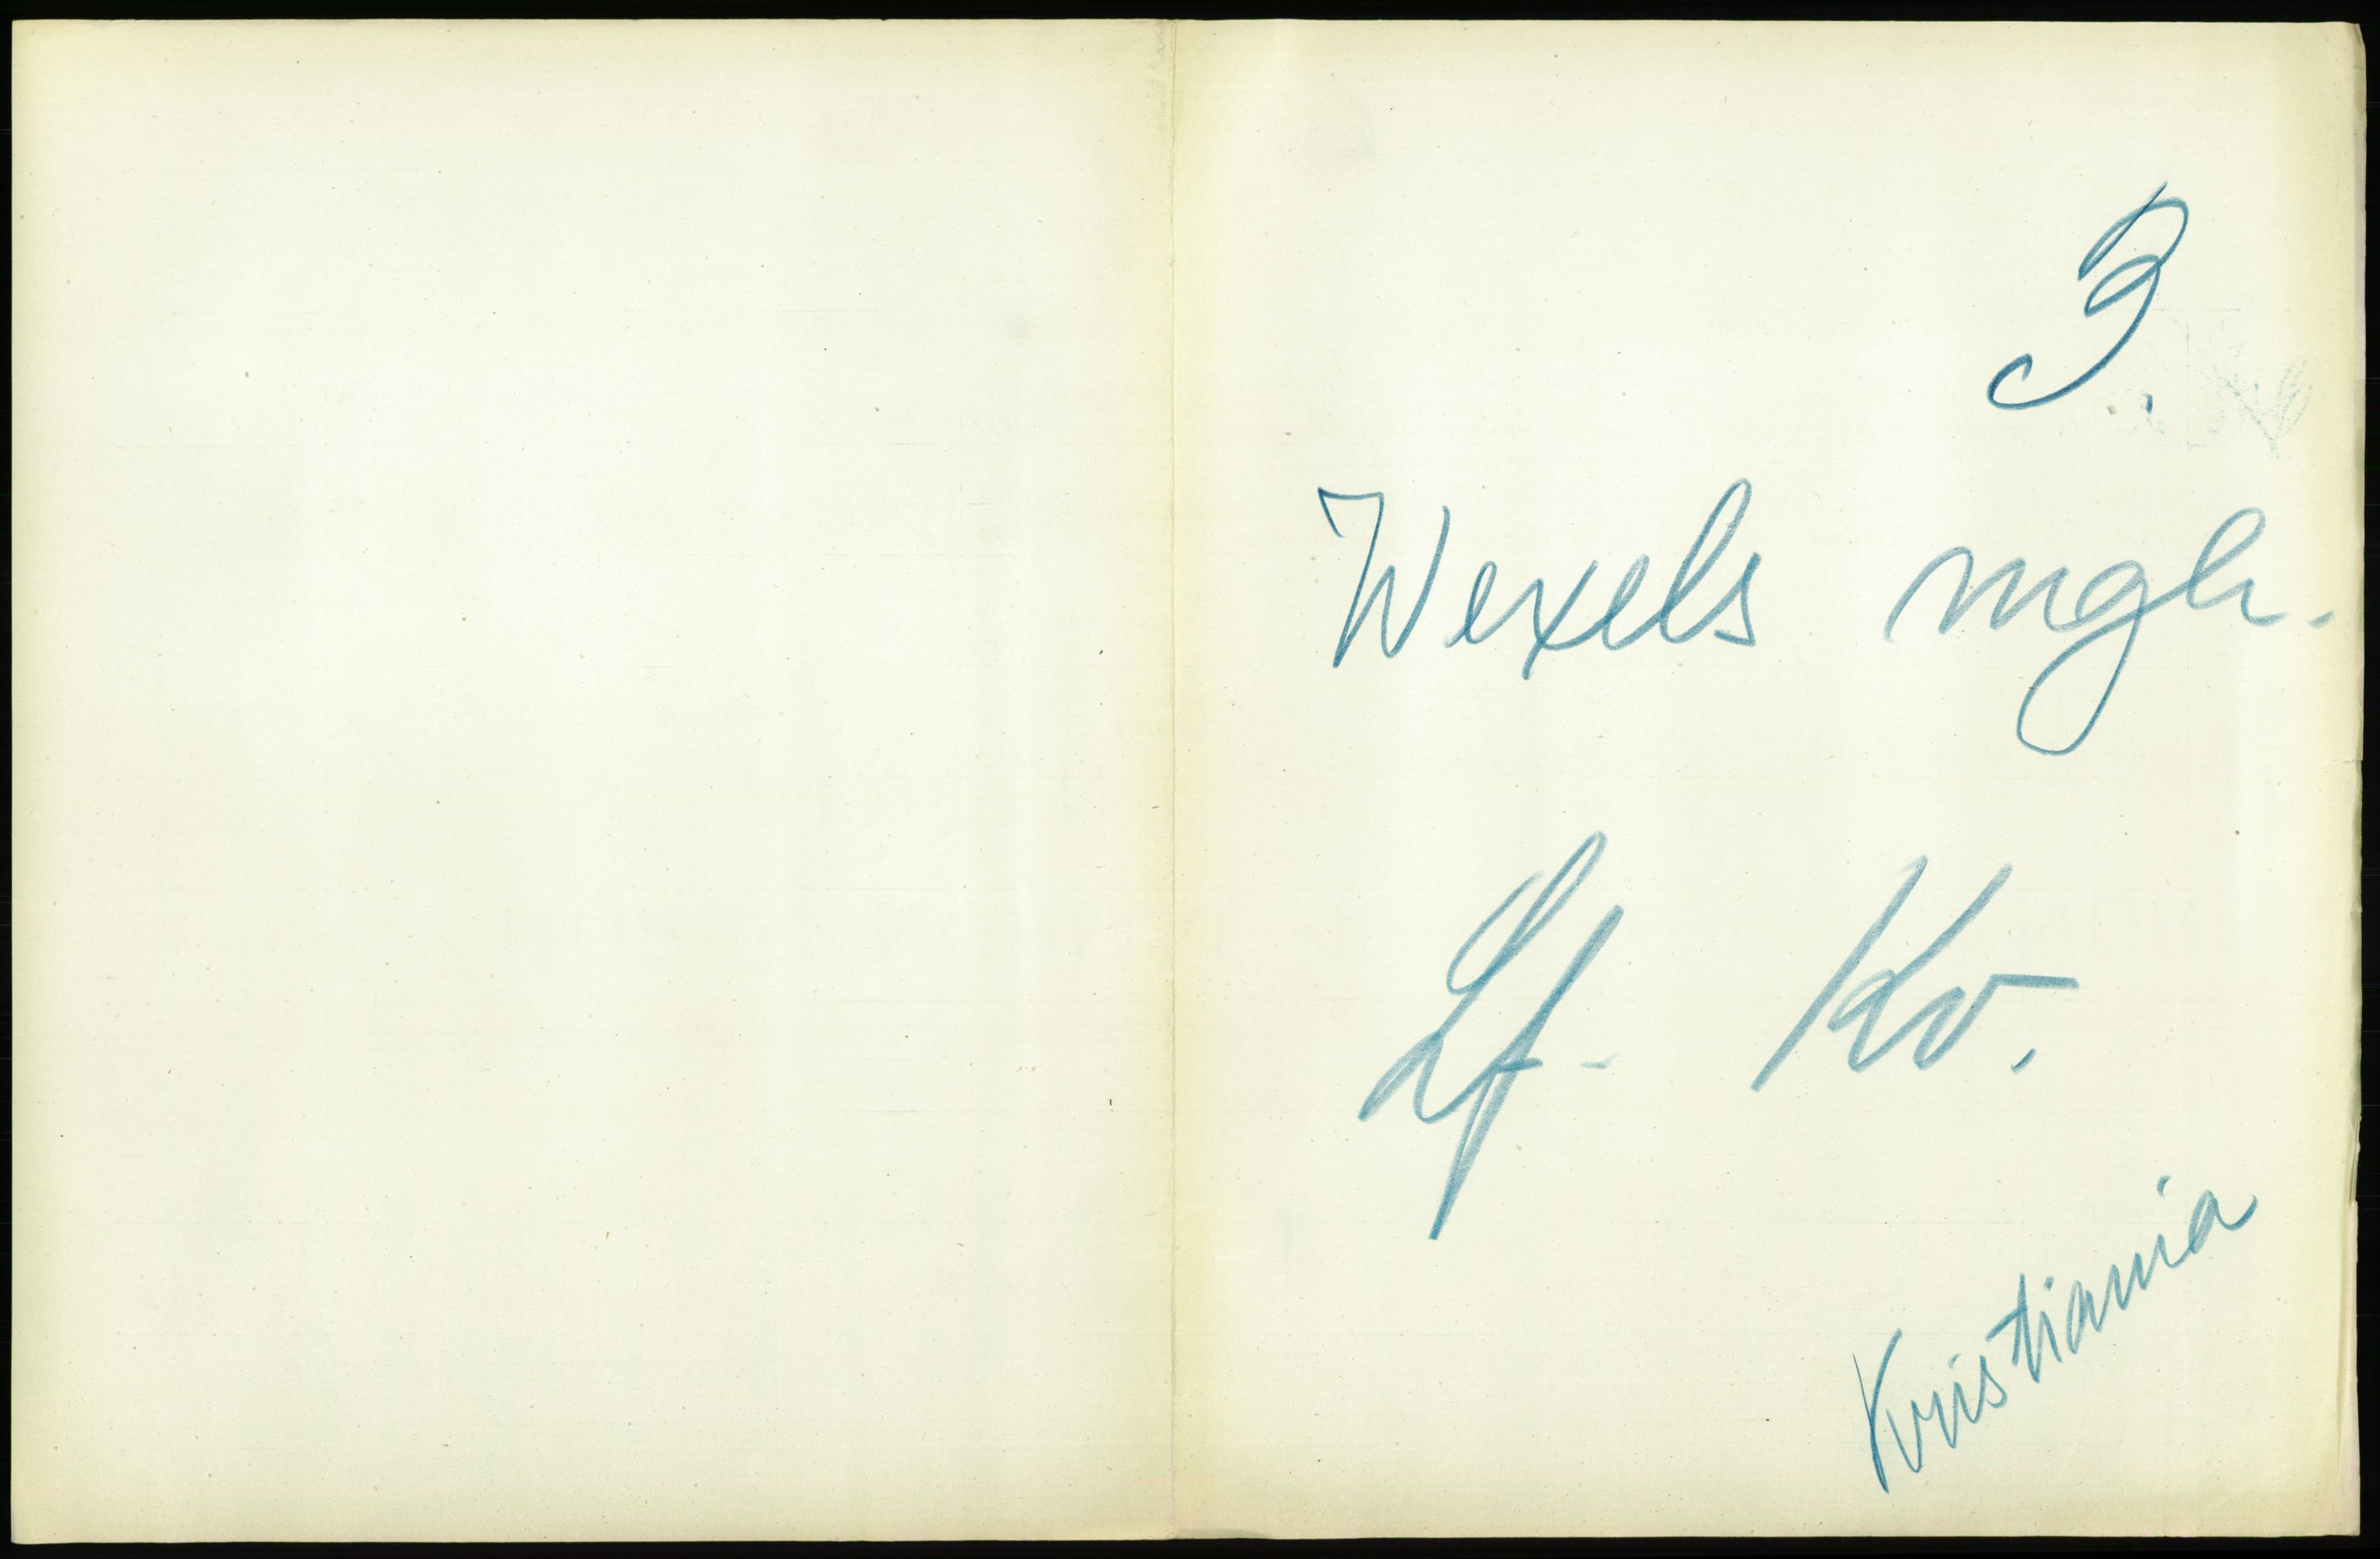 3.
Wexels mgh.
Lf. Kv.
Kristiania